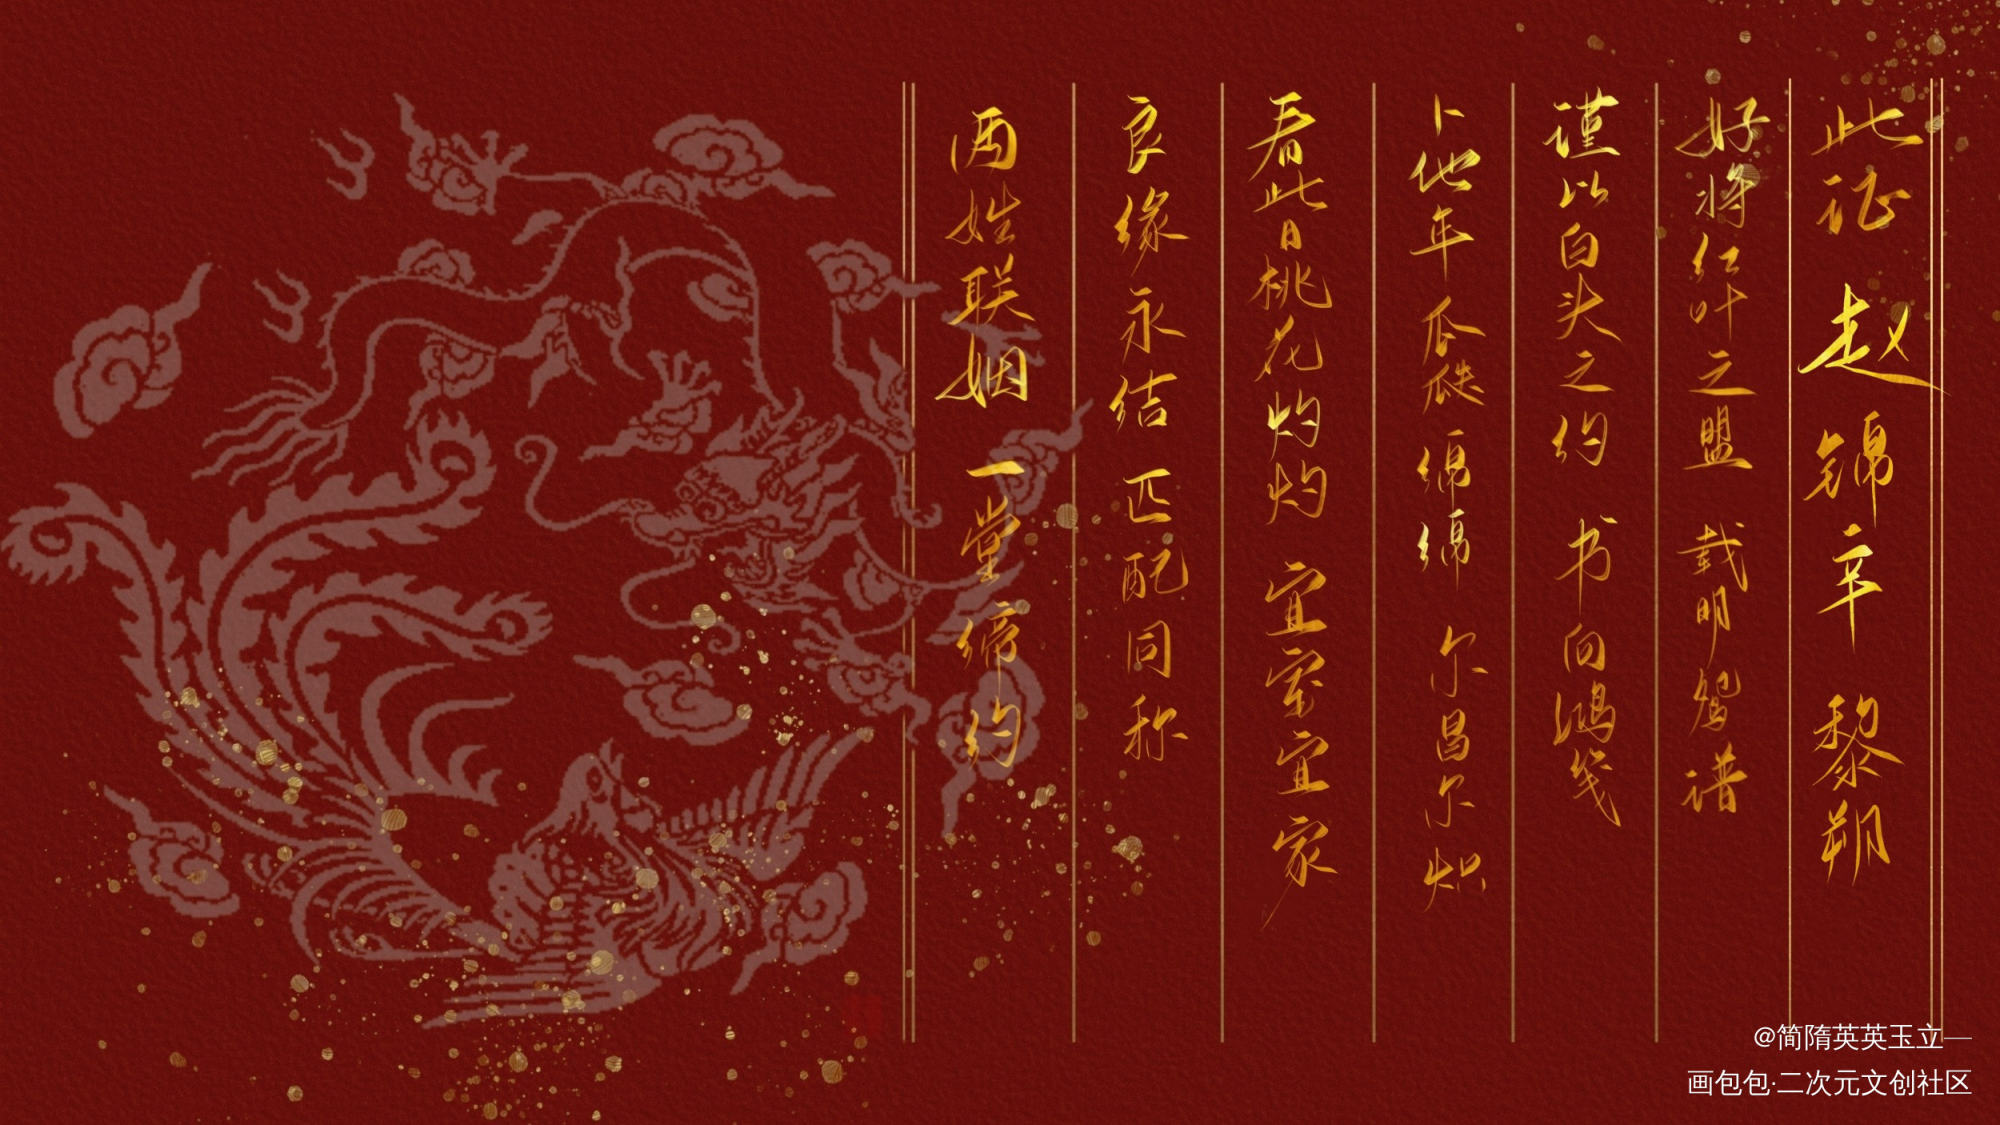 两姓联姻 一堂缔约
良缘永结 匹配同称
看此日桃花灼灼 宜室宜家
卜他年瓜瓞绵绵 尔昌尔炽
谨以白头之约 书向鸿笺
好将红叶之盟 载明鸳谱
此证 赵锦辛 黎朔
@简隋英英玉立—
画包包·二次元文创社区